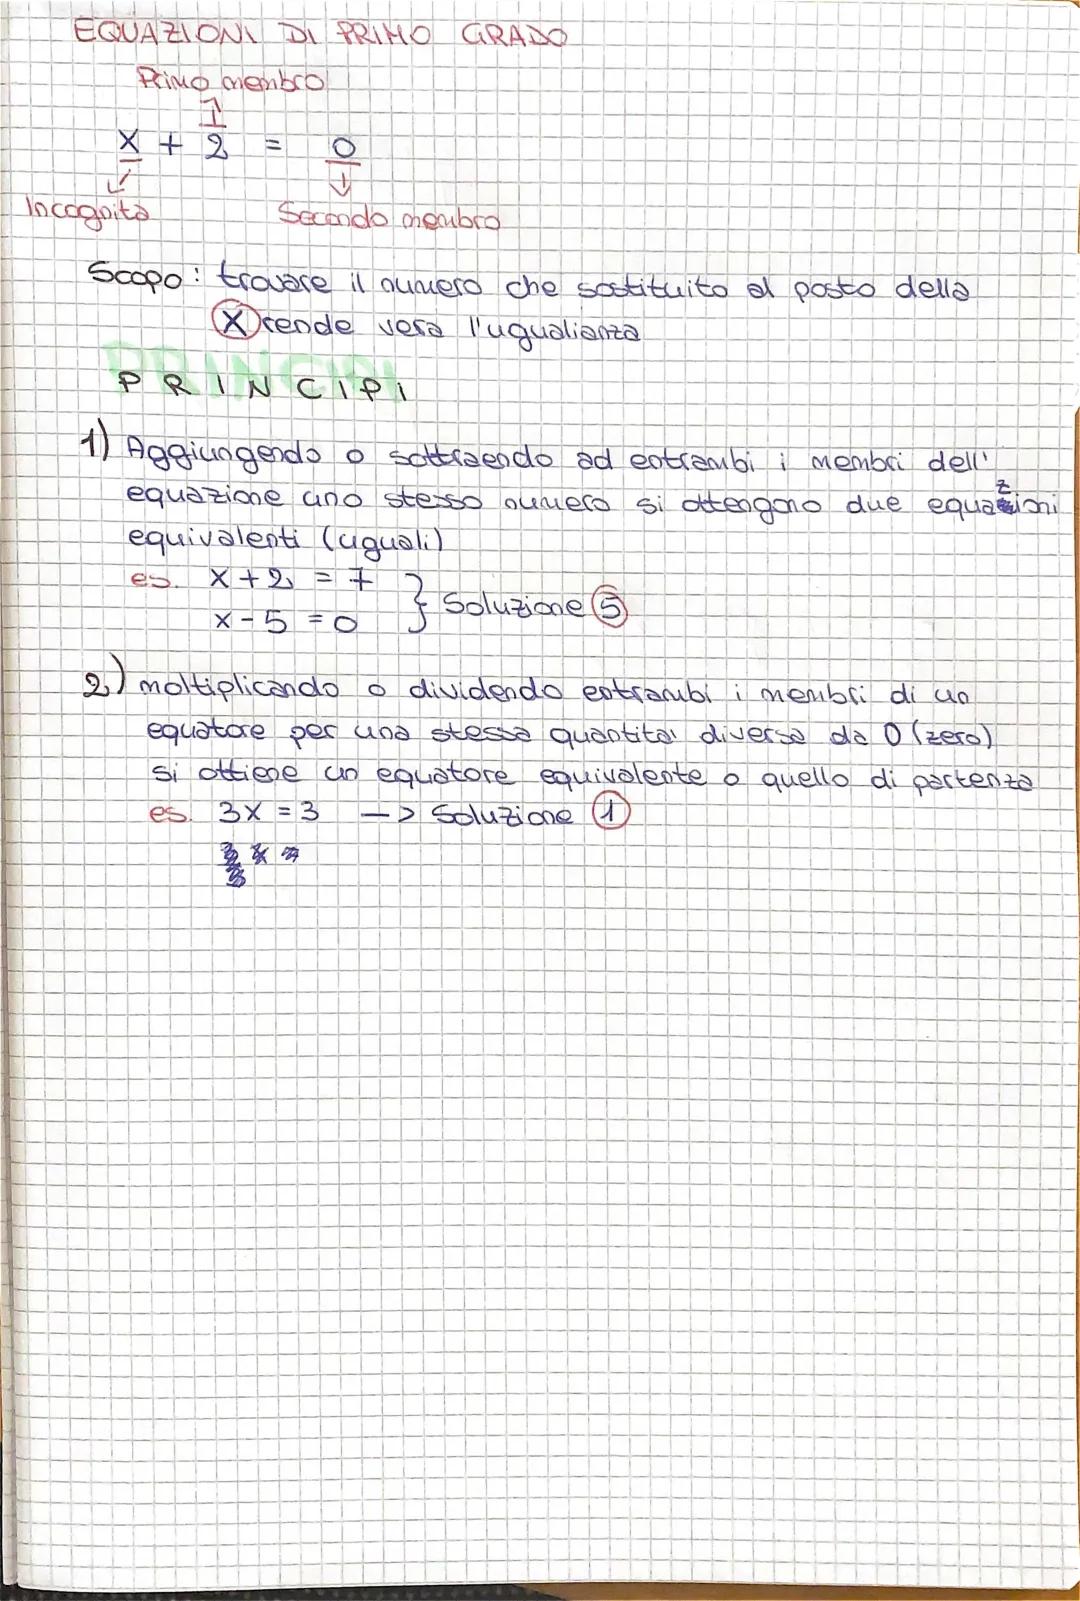 EQUAZIONI DI PRIMO GRADO
Primo membro
x + 2 = 0
Incognita Secondo membro
Scopo: trovare il numero che sostituito al posto della
x rende vera l'ugualianza
PRINCIPI
1) Aggiungendo o sottraendo ad entrambi i membri dell'
equazione uno stesso numero si ottengono due equazioni
equivalenti (uguali)
es. x+2 = 7
x-5 = 0 } Soluzione 5
2) moltiplicando o dividendo entrambi i membri di un
equatore per una stessa quantita' diversa da 0 (zero)
si ottiene un equatore equivalente a quello di partenza
es. 3x = 3 -> Soluzione 1